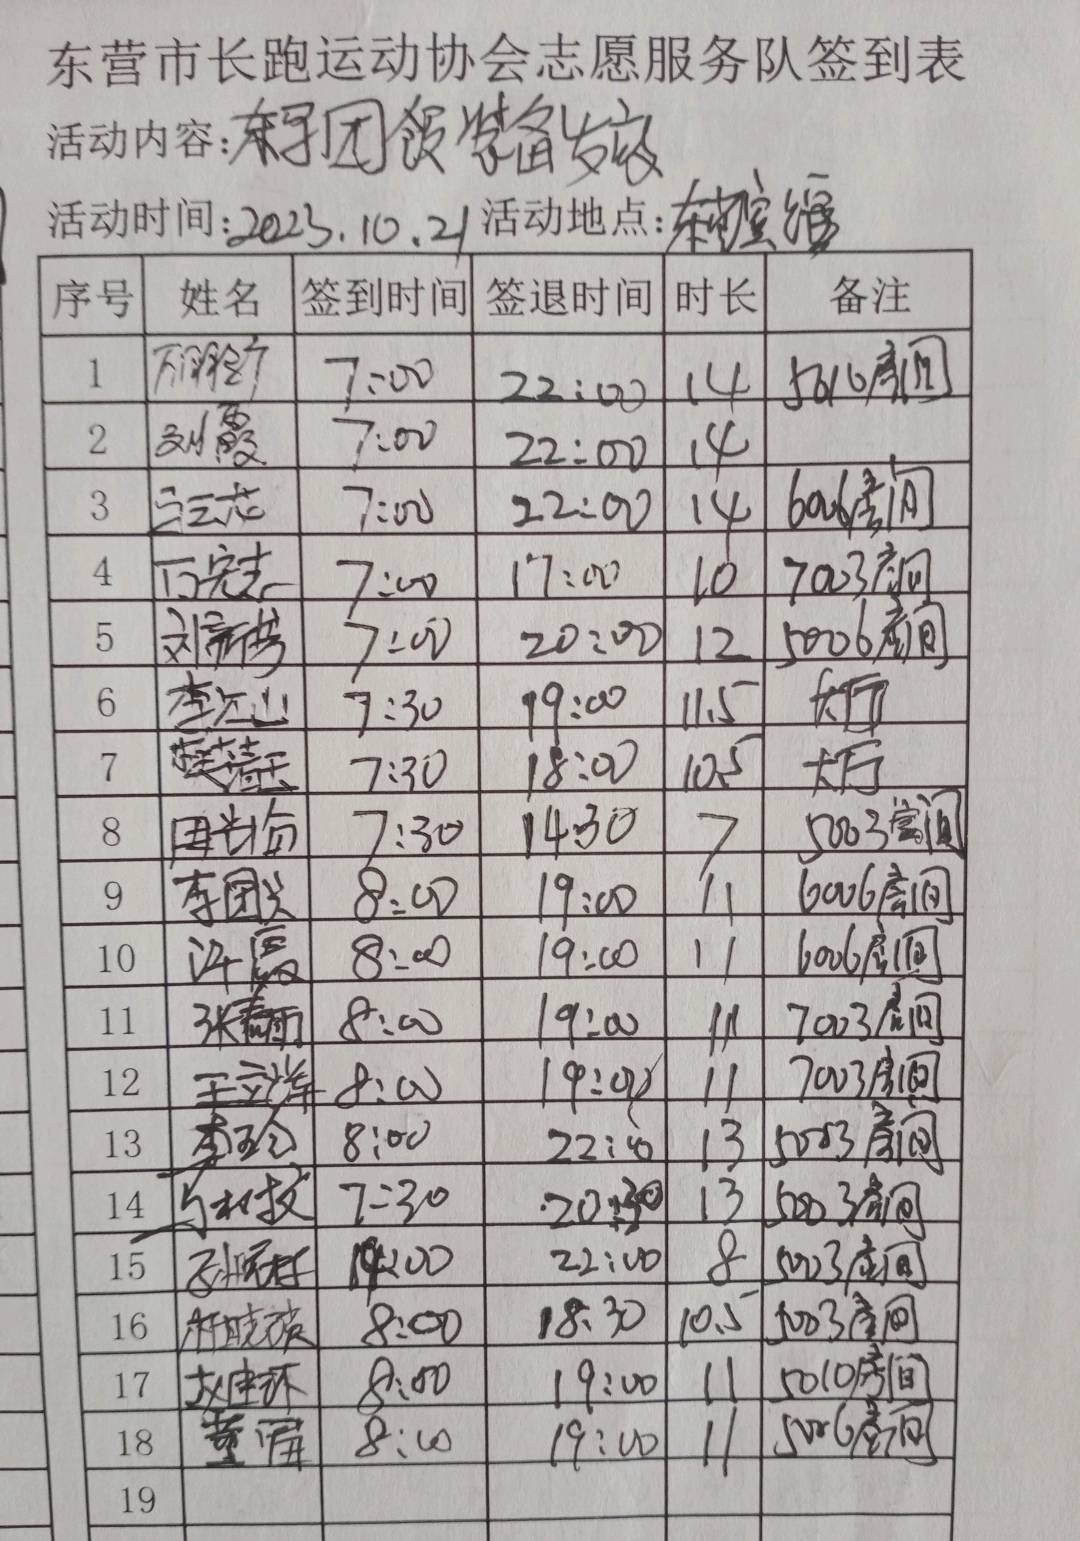 东营市长跑运动协会志愿服务队签到表
活动内容:东马团餐装备发放
活动时间:2023.10.21 活动地点:东营宾馆
序号 姓名 签到时间 签退时间 时长 备注
1 7:00 22:00 14 5010房间
2 刘霞 7:00 22:00 14
3 7:00 22:00 14 6006房间
4 7:00 17:00 10 7003房间
5 刘新芳 7:00 20:00 12 5006房间
6 李江山 7:30 19:00 11.5 大厅
7 7:30 18:00 10.5 大厅
8 7:30 14:30 7 5003房间
9 李团关 8:00 19:00 11 6006房间
10 许霞 8:00 19:00 11 6006房间
11 张春雨 8:00 19:00 11 7003房间
12 王立洋 8:00 19:00 11 7003房间
13 8:00 22:00 13 5003房间
14 7:30 20:30 13 5003房间
15 14:00 22:00 8 5003房间
16 8:00 18:30 10.5 5003房间
17 赵建环 8:00 19:00 11 5010房间
18 董屏 8:00 19:00 11 5006房间
19